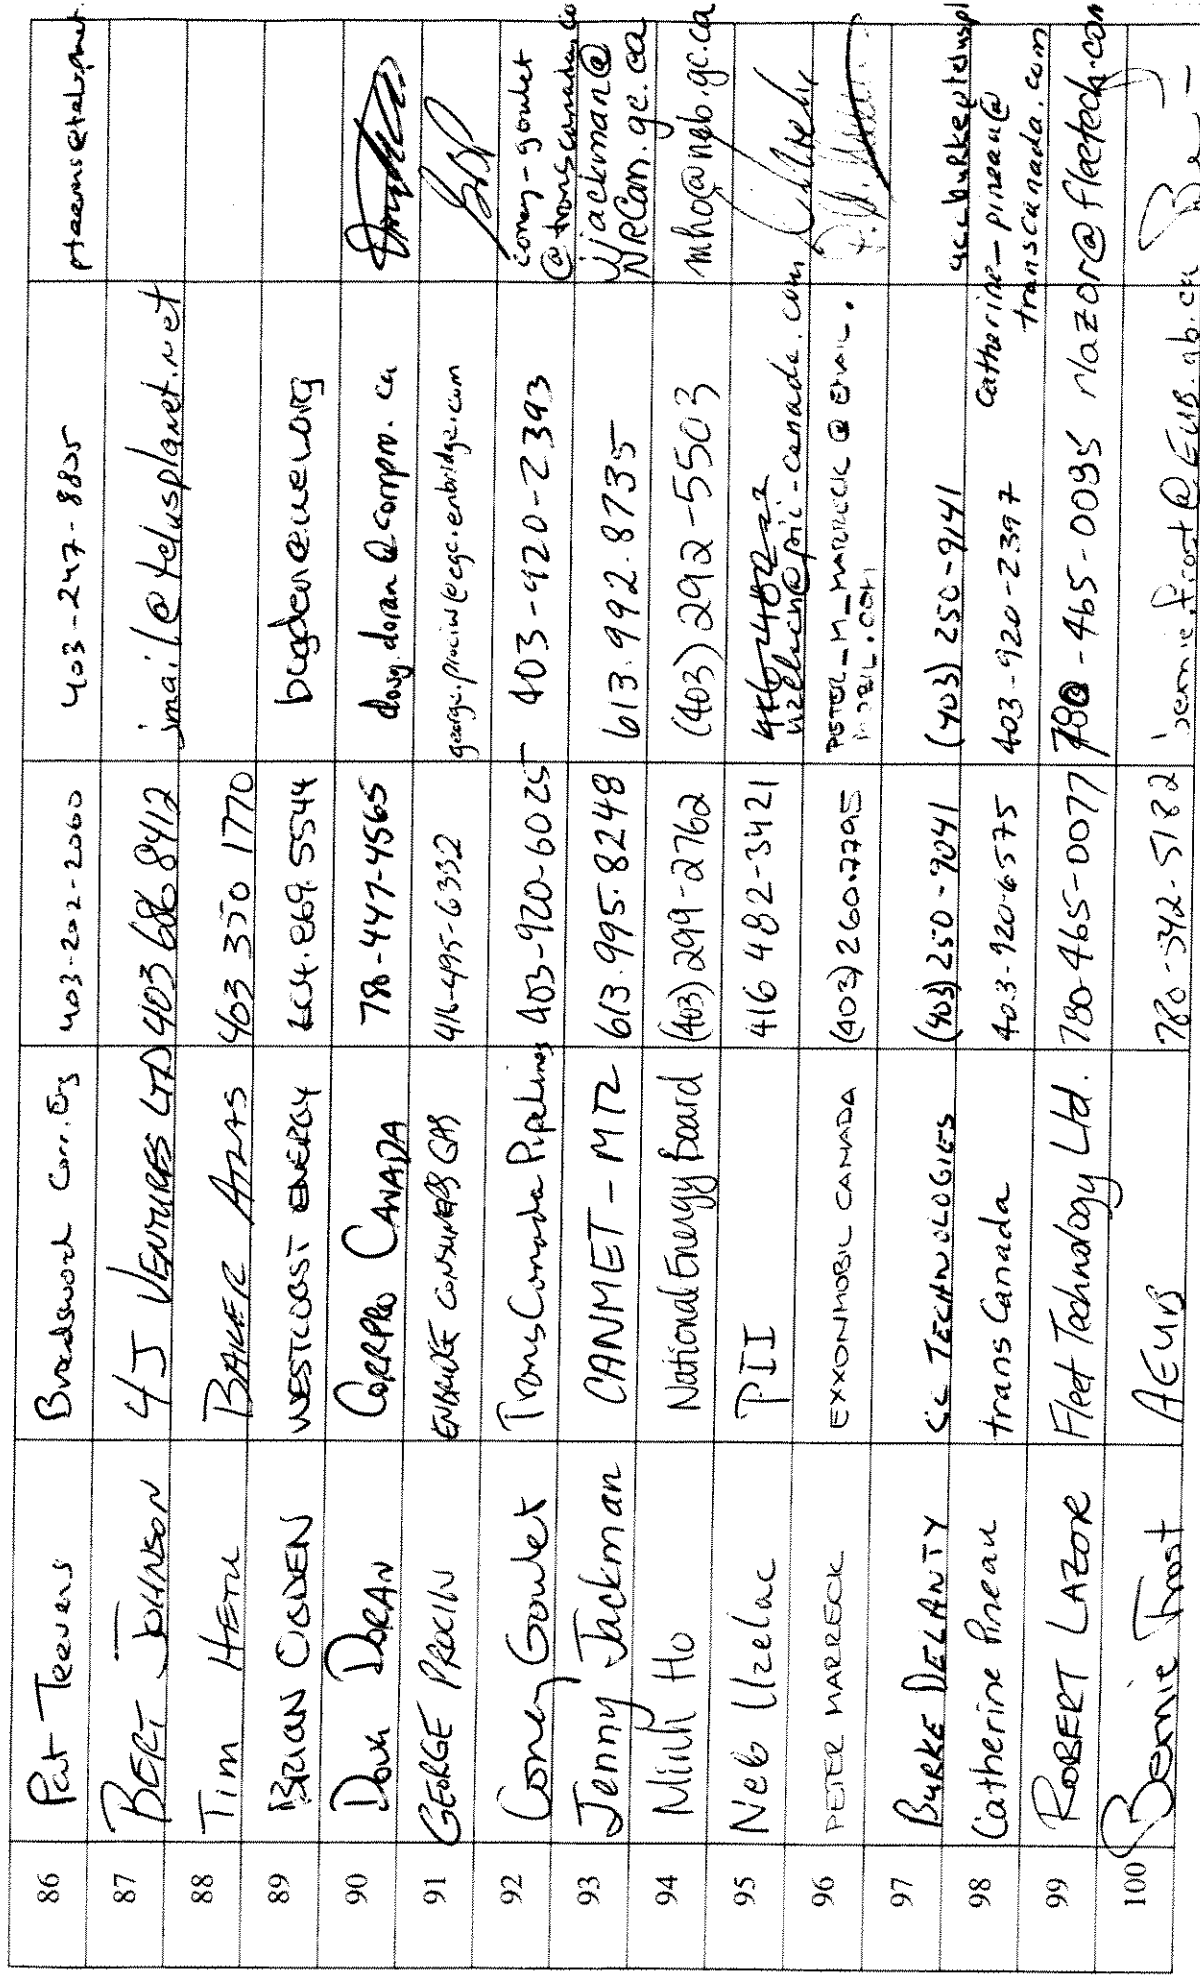 86 Pat Teevens Broadsword Corr. Eng 403-202-2060 403-247-8825
87 BERT JOHNSON 4J VENTURES LTD 403 686 8412 jmail@telusplanet.net
88 Tim BAKER ATLAS 403 350 1770
89 BRIAN OGDEN WESTCOAST ENERGY 604.869.5544
90 Doug DORAN CORRPRO CANADA 780-447-4565 doug.doran@corrpro.ca
91 GEORGE PROCIW ENBRIDGE CONSUMERS GAS 416-495-6332 george.prociw@cgc.enbridge.com
92 Coney Goulet TransCanada Pipelines 403-920-6025 403-920-2393 coney-goulet
@transcanada.co
93 Jenny Jackman CANMET-MTL 613.995.8248 613.992.8735 jjackman@
NRCan.gc.ca
94 Minh Ho National Energy Board (403) 299-2762 (403) 292-5503 mho@neb.gc.ca
95 Neb Uzelac PII 416 482-3421
uzelacn@pii-canada.com
96 PETER MARRECK EXXONMOBIL CANADA (403) 260.7795 PETER_M_MARRECK @ EMAIL.
MOBIL.COM
97 BURKE DELANTY CC TECHNOLOGIES (403) 250-9041 (403) 250-9141
98 Catherine Pineau transCanada 403-920-6575 403-920-2397 catherine-pineau@
transcanada.com
99 ROBERT LAZOR Fleet Technology Ltd. 780-465-0077 780-465-0095 rlazor@fleetech.com
100 Bernie Frost AEUB 780-342-5182 bernie.frost@EUB.gb.ca